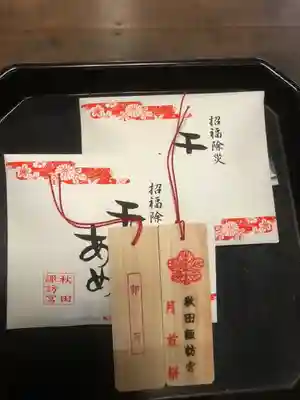 招福除災
千
招福除
千
あめ
秋田
諏訪宮
御
秋田諏訪宮